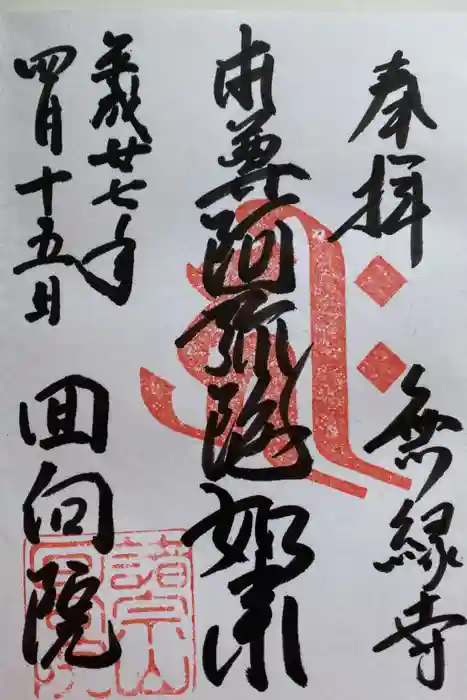 奉拝
無縁寺
本尊阿弥陀如来
平成廿七年
四月十五日
回向院
諸宗山
回向院